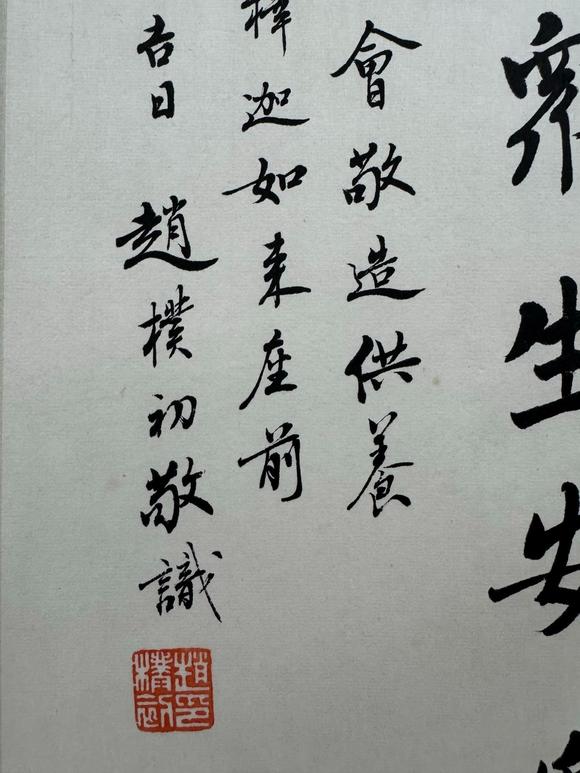 眾生安
會敬造供養
釋迦如来座前
吉日 趙樸初敬識
趙樸初印